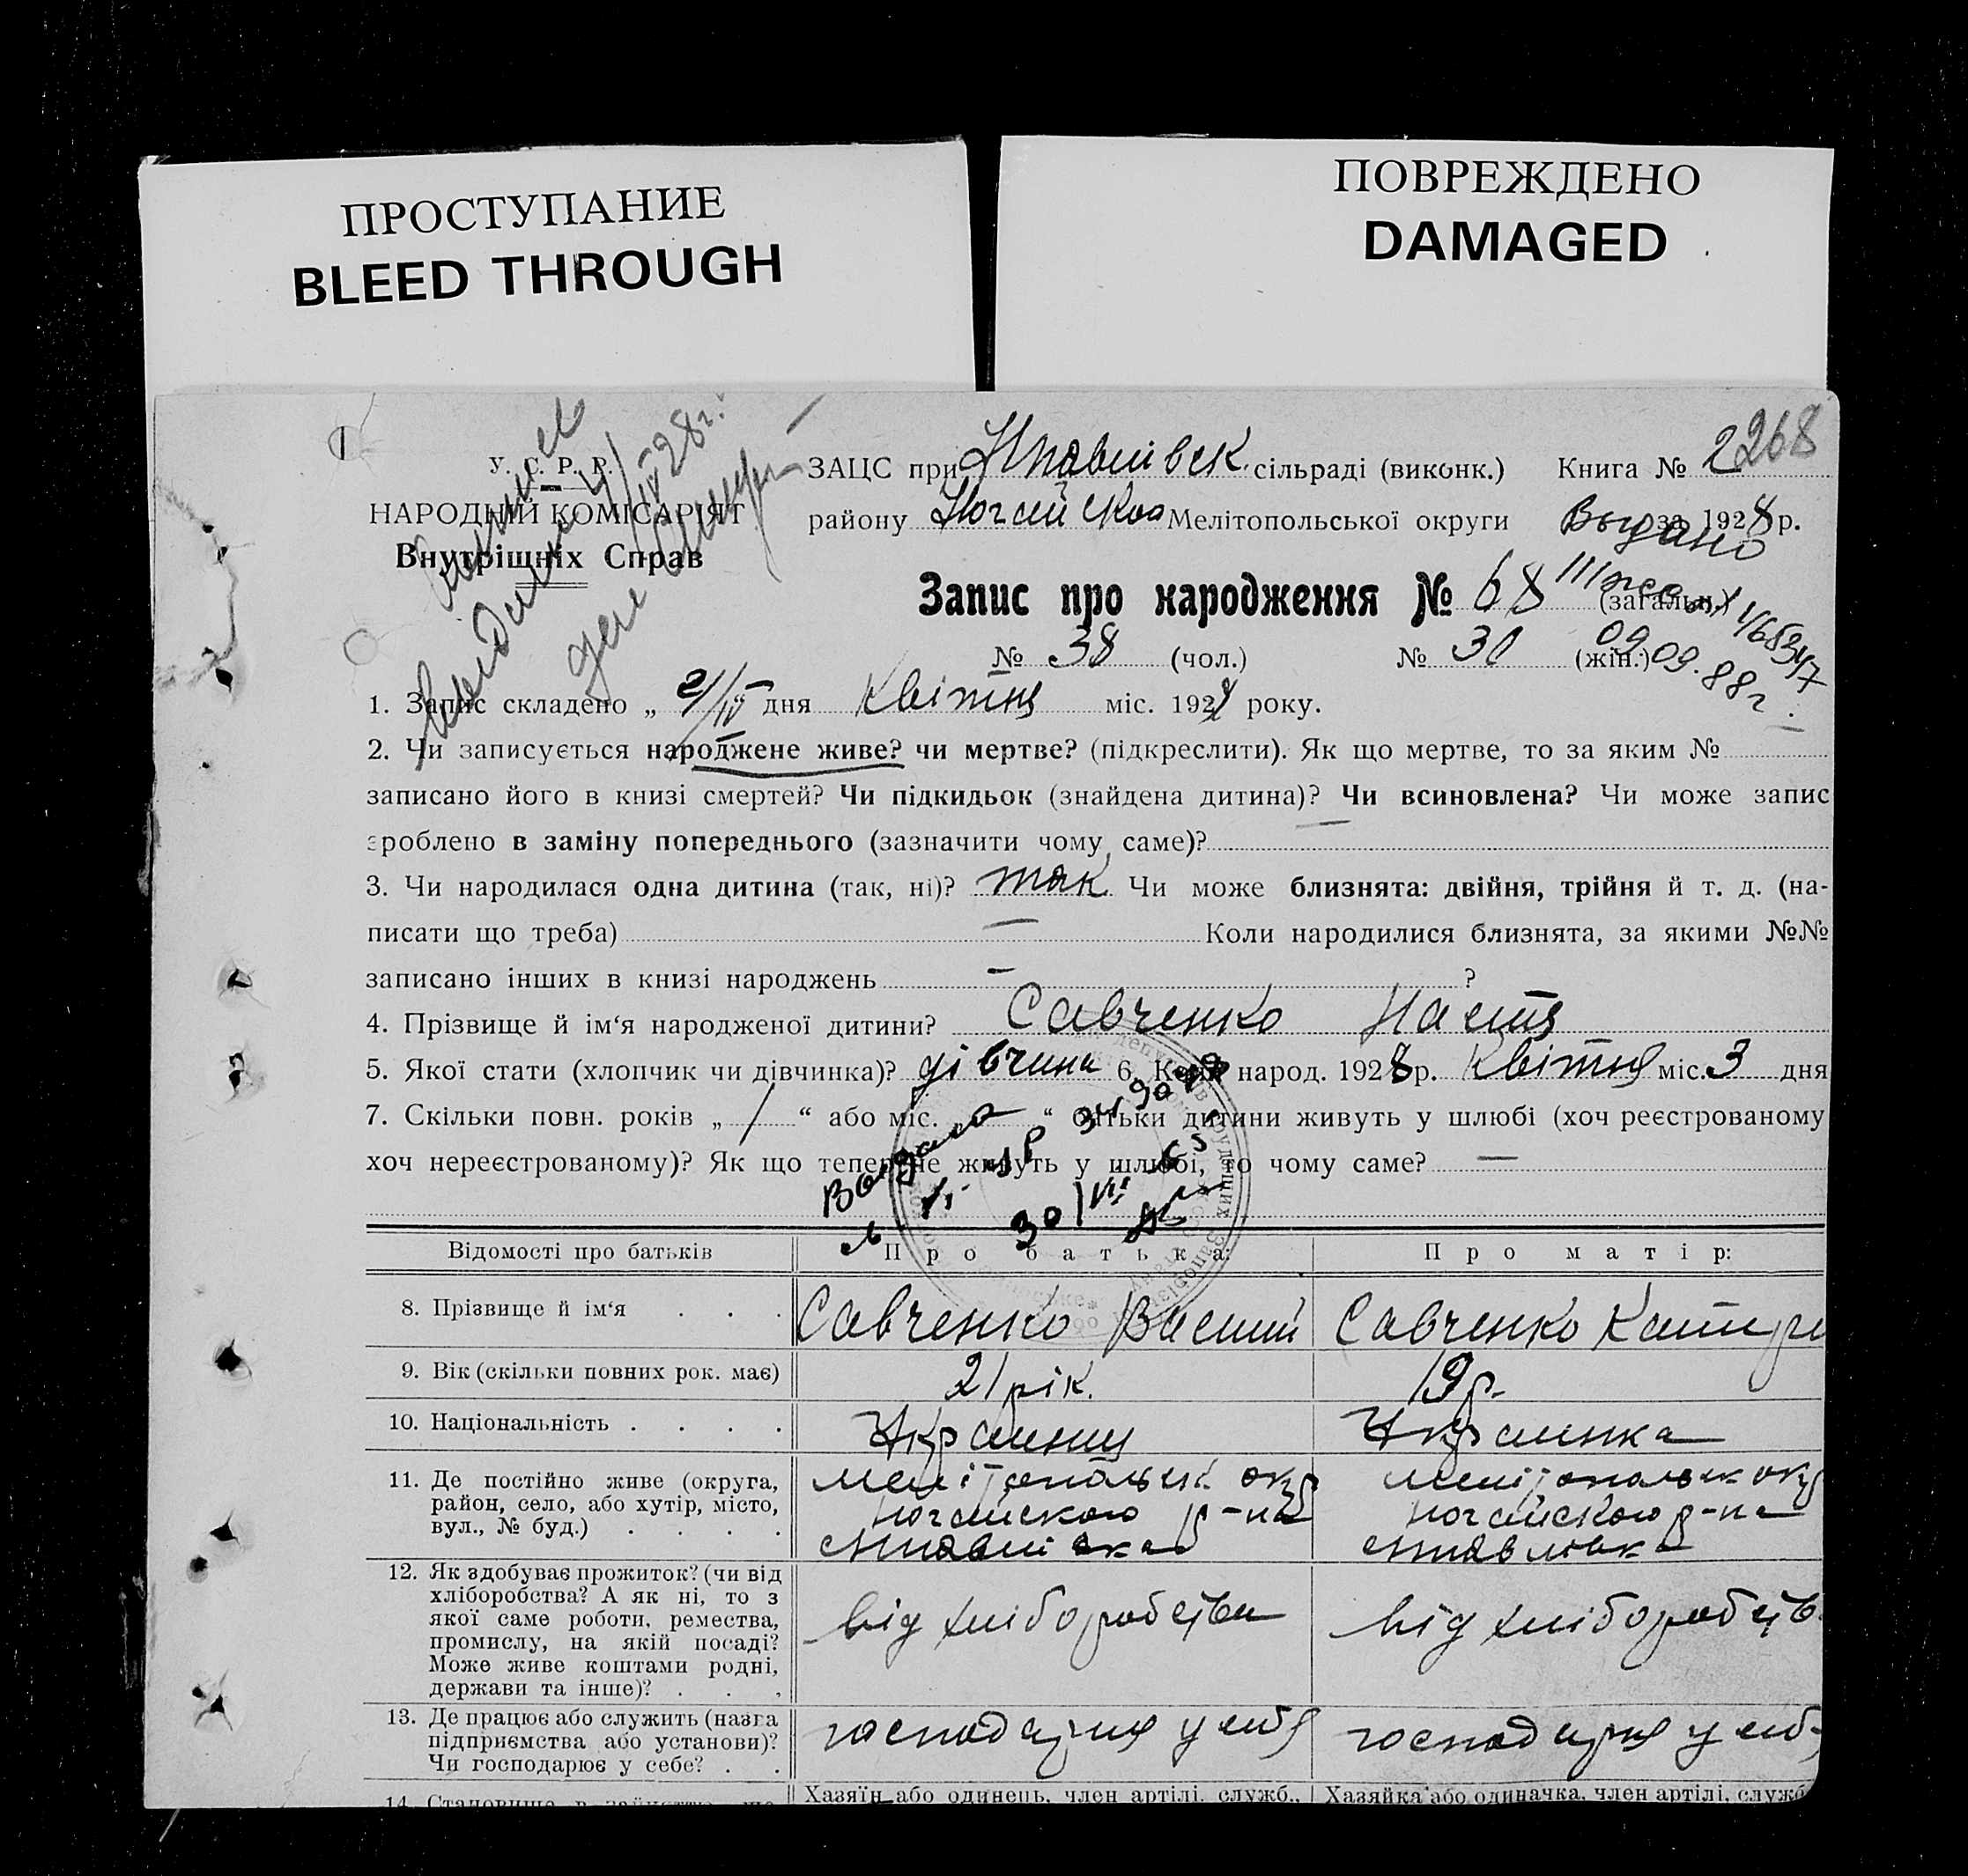 ПРОСТУПАНИЕ
BLEED THROUGH
ПОВРЕЖДЕНО
DAMAGED
У. С. Р. Р.
НАРОДНІЙ КОМІСАРІЯТ
Внутрішніх Справ
28г.
ЗАЦС при сільраді (виконк.) Книга № 2 268
району Мелітопольської округи за 1928 р.
Выдано
Запис про народження № 68 (загальн.)
№ 38 (чол.) № 30 (жін.)
09.09.88г.
1. Запис складено „ 4/IV дня Квітня міс. 1928 року.
2. Чи записується народжене живе? чи мертве? (підкреслити). Як що мертве, то за яким №
записано його в книзі смертей? Чи підкидьок (знайдена дитина)? Чи всиновлена? Чи може запис
зроблено в заміну попереднього (зазначити чому саме)? —
3. Чи народилася одна дитина (так, ні)? так Чи може близнята: двійня, трійня й т. д. (на-
писати що треба) — Коли народилися близнята, за якими №№
записано інших в книзі народжень — ?
4. Прізвище й ім‘я народженої дитини? Савченко Настя
5. Якої стати (хлопчик чи дівчинка)? дівчина 6. Коли народ. 1928 р. Квітня міс. 3 дня
7. Скільки повн. років „ / “ або міс. — “ батьки дитини живуть у шлюбі (хоч реєстрованому
хоч нереєстрованому)? Як що тепер не живуть у шлюбі, то чому саме? —
Відомості про батьків Про батька: Про матір:
8. Прізвище й ім‘я . . . Савченко Василий Савченко
9. Вік (скільки повних рок. має) 21 рік. 19 р.
10. Національність . . . . Українець Українка
11. Де постійно живе (округа,
район, село, або хутір, місто,
вул., № буд.) . . . .
Мелітопольськ. окр Мелітопольськ окр
Ногайського р-на Ногайского р-на
12. Як здобуває прожиток? (чи від
хліборобства? А як ні, то з
якої саме роботи, ремества,
промислу, на якій посаді?
Може живе коштами родні,
держави та інше)? . . .
від хліборобства від хліборобств
13. Де працює або служить (назга
підприємства або установи)?
Чи господарює у себе? . .
господарня у себя господарня у себ
14. Становище в
Хазяїн або одинець, член артілі, служб., Хазяйка або одиначка, член артілі, служб